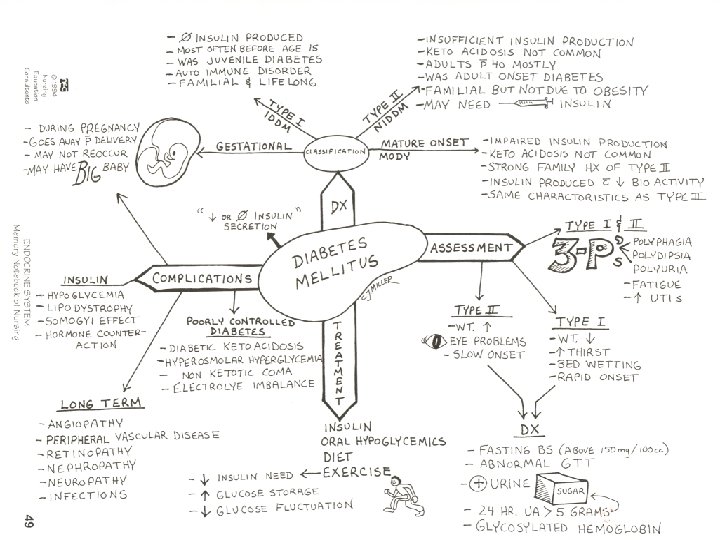 - Ø INSULIN PRODUCED
- MOST OFTEN BEFORE AGE 15
- WAS JUVENILE DIABETES
- AUTO IMMUNE DISORDER
- FAMILIAL & LIFELONG
TYPE I
IDDM
- INSUFFICIENT INSULIN PRODUCTION
- KETO ACIDOSIS NOT COMMON
- ADULTS P̄ 40 MOSTLY
- WAS ADULT ONSET DIABETES
- FAMILIAL BUT NOT DUE TO OBESITY
- MAY NEED INSULIN
TYPE II
NIDDM
- DURING PREGNANCY
- GOES AWAY P̄ DELIVERY
- MAY NOT REOCCUR
- MAY HAVE BIG BABY
GESTATIONAL
CLASSIFICATION
MATURE ONSET
MODY
- IMPAIRED INSULIN PRODUCTION
- KETO ACIDOSIS NOT COMMON
- STRONG FAMILY HX OF TYPE II
- INSULIN PRODUCED C̄ ↓ BIO ACTIVITY
- SAME CHARACTERISTICS AS TYPE II
DX
"↓ OR Ø INSULIN"
SECRETION
DIABETES
MELLITUS
CJMILLER
ASSESSMENT
TYPE I & II
3-P's
POLYPHAGIA
POLYDIPSIA
POLYURIA
- FATIGUE
- ↑ UTIs
COMPLICATIONS
INSULIN
- HYPOGLYCEMIA
- LIPODYSTROPHY
- SOMOGYI EFFECT
- HORMONE COUNTER-
ACTION
POORLY CONTROLLED
DIABETES
- DIABETIC KETOACIDOSIS
- HYPEROSMOLAR HYPERGLYCEMIA
NON KETOTIC COMA
- ELECTROLYE IMBALANCE
LONG TERM
- ANGIOPATHY
- PERIPHERAL VASCULAR DISEASE
- RETINOPATHY
- NEPHROPATHY
- NEUROPATHY
- INFECTIONS
TREATMENT
INSULIN
ORAL HYPOGLYCEMICS
DIET
EXERCISE
- ↓ INSULIN NEED
- ↑ GLUCOSE STORAGE
- ↓ GLUCOSE FLUCTUATION
TYPE II
- WT. ↑
EYE PROBLEMS
- SLOW ONSET
TYPE I
- WT. ↓
- ↑ THIRST
- BED WETTING
- RAPID ONSET
DX
- FASTING BS (ABOVE 150mg/100cc)
- ABNORMAL GTT
- + URINE SUGAR
- 24 HR. UA > 5 GRAMS
- GLYCOSYLATED HEMOGLOBIN
Nursing
Education
Consultants
ENDOCRINE SYSTEM
Memory Notebook of Nursing
49